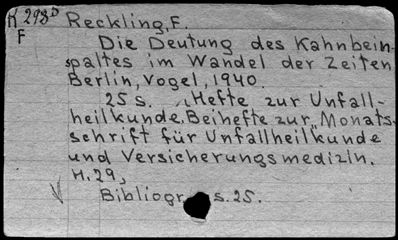 K 298D Reckling, F.
F
Die Deutung des Kahnbein-
spaltes im Wandel der Zeiten
Berlin, Vogel, 1940.
25 S. (Hefte zur Unfall-
heilkunde. Beihefte zur „Monats-
schrift für Unfallheilkunde
und Versicherungsmedizin.
H. 29,
Bibliogr s. 25.